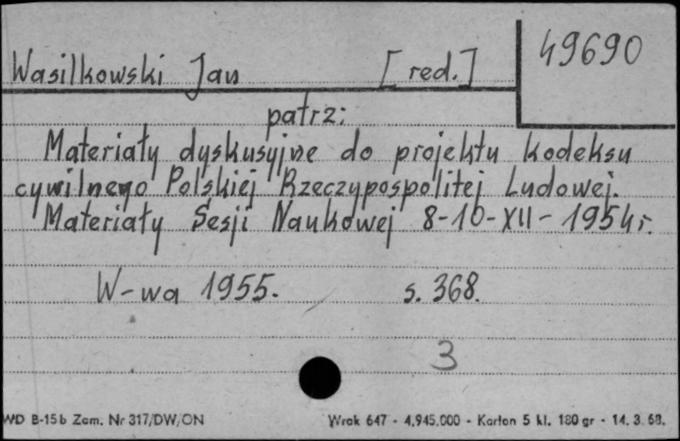 49690
Wasilkowski Jan [red.]
patrz:
Materiały dyskusyjne do projektu kodeksu
cywilnego Polskiej Rzeczypospolitej Ludowej.
Materiały Sesji Naukowej 8-10-XII-1954r.
W-wa 1955. s. 368.
3
WD B-15b Zam. Nr 317/DW/ON Wrak 647 - 4.945.000 - Karton 5 kl. 180 gr - 14. 3. 68.